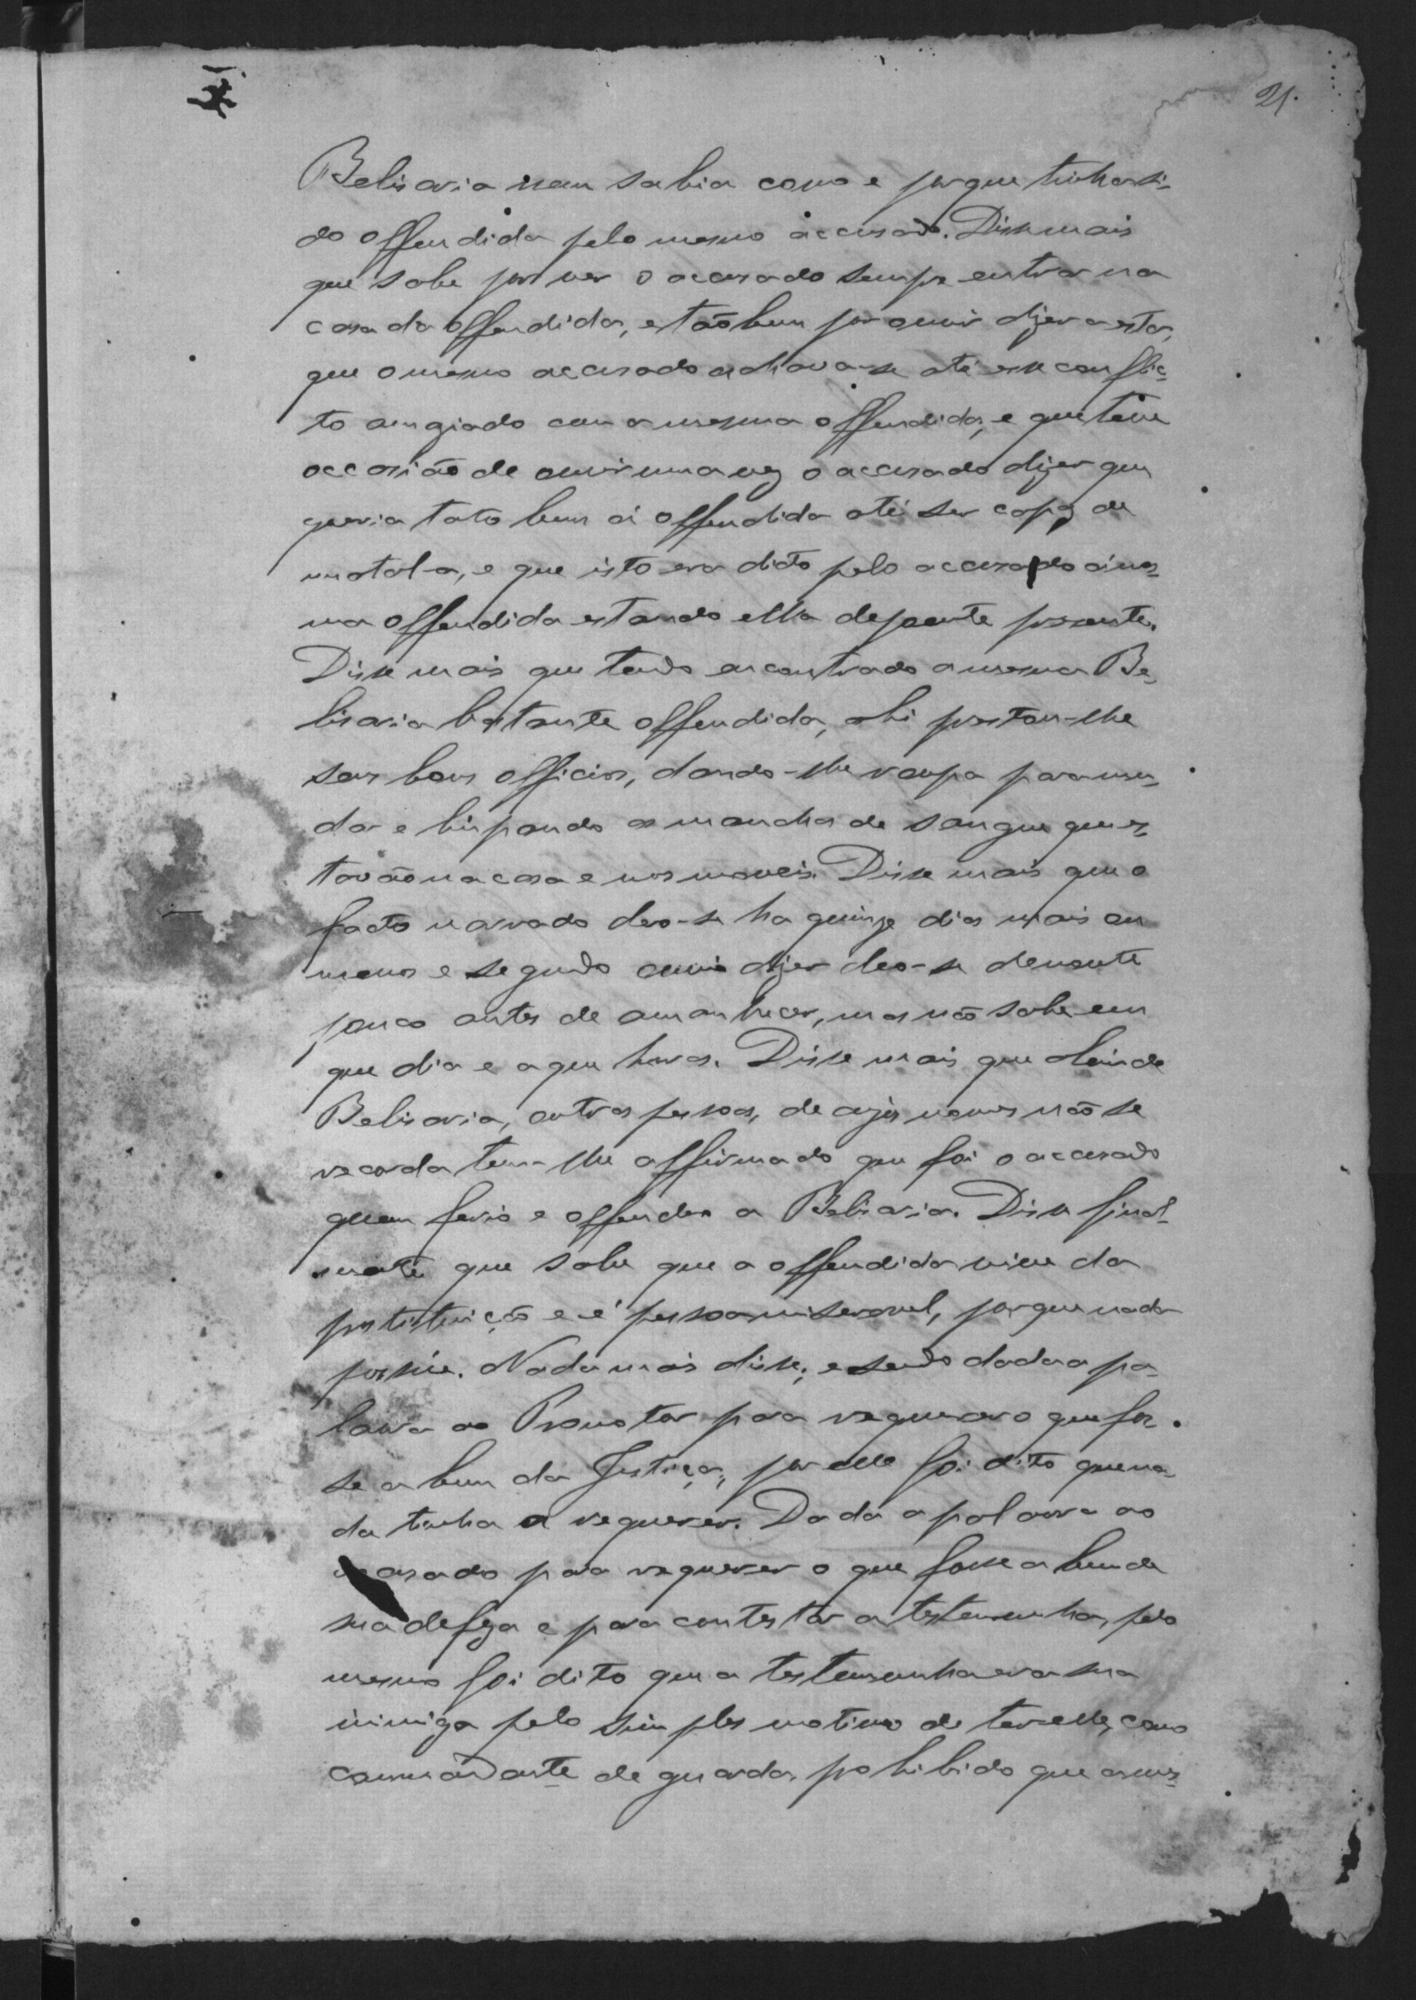 21.
Belisaria nem sabia como e porque tinha si-
do offendida pelo mesmo accusado. Disse mais
que sabe por ver o accusado sempre entrar na
casa da offendida, e tãobem por ouvir dizer a esta,
que o mesmo accusado achava-se até esse conflic-
to amgiado com a mesma offendida, e que teve
occasião de ouvir uma vez o accusado dizer que
queria tato bem á offendida até ser capaz de
matal-a, e que isto era dito pelo accusado á mes-
ma offendida estando ella depoente presente.
Disse mais que tendo encontrado a mesma Be-
lisaria bastante offendida, ahi prestou-lhe
seus bons officios, dando-lhe roupa para mu-
dar e limpando as manchas de sangue que es-
tavão na casa e nos moveis. Disse mais que o
facto narrado deo-se ha quinze dias mais ou
menos e segundo ouvio dizer deo-se de noute
pouco antes de amanhecer, mas não sabe em
que dia e a que horas. Disse mais que alem de
Belisaria, outras pessoas, de cujos nomes não se
recorda tem-lhe affirmado que foi o accusado
quem ferio e offendeo a Belisaria. Disse final-
mente que sabe que a offendida vive da
prostituição e é pessoa miseravel, porque nada
possúe. Nada mais disse; e sendo dada a pa-
lavra ao Promotor para requerer o que fos-
se a bem da Justiça, por elle foi dito que na-
da tinha a requerer. Dada a palavra ao
accusado para requerer o que fosse a bem de
sua defeza e para contestar a testemunha, pelo
mesmo foi dito que a testemunha era sua
inimiga pelo simples motivo de ter elle, como
commandante de guarda, prohibido que a mes-